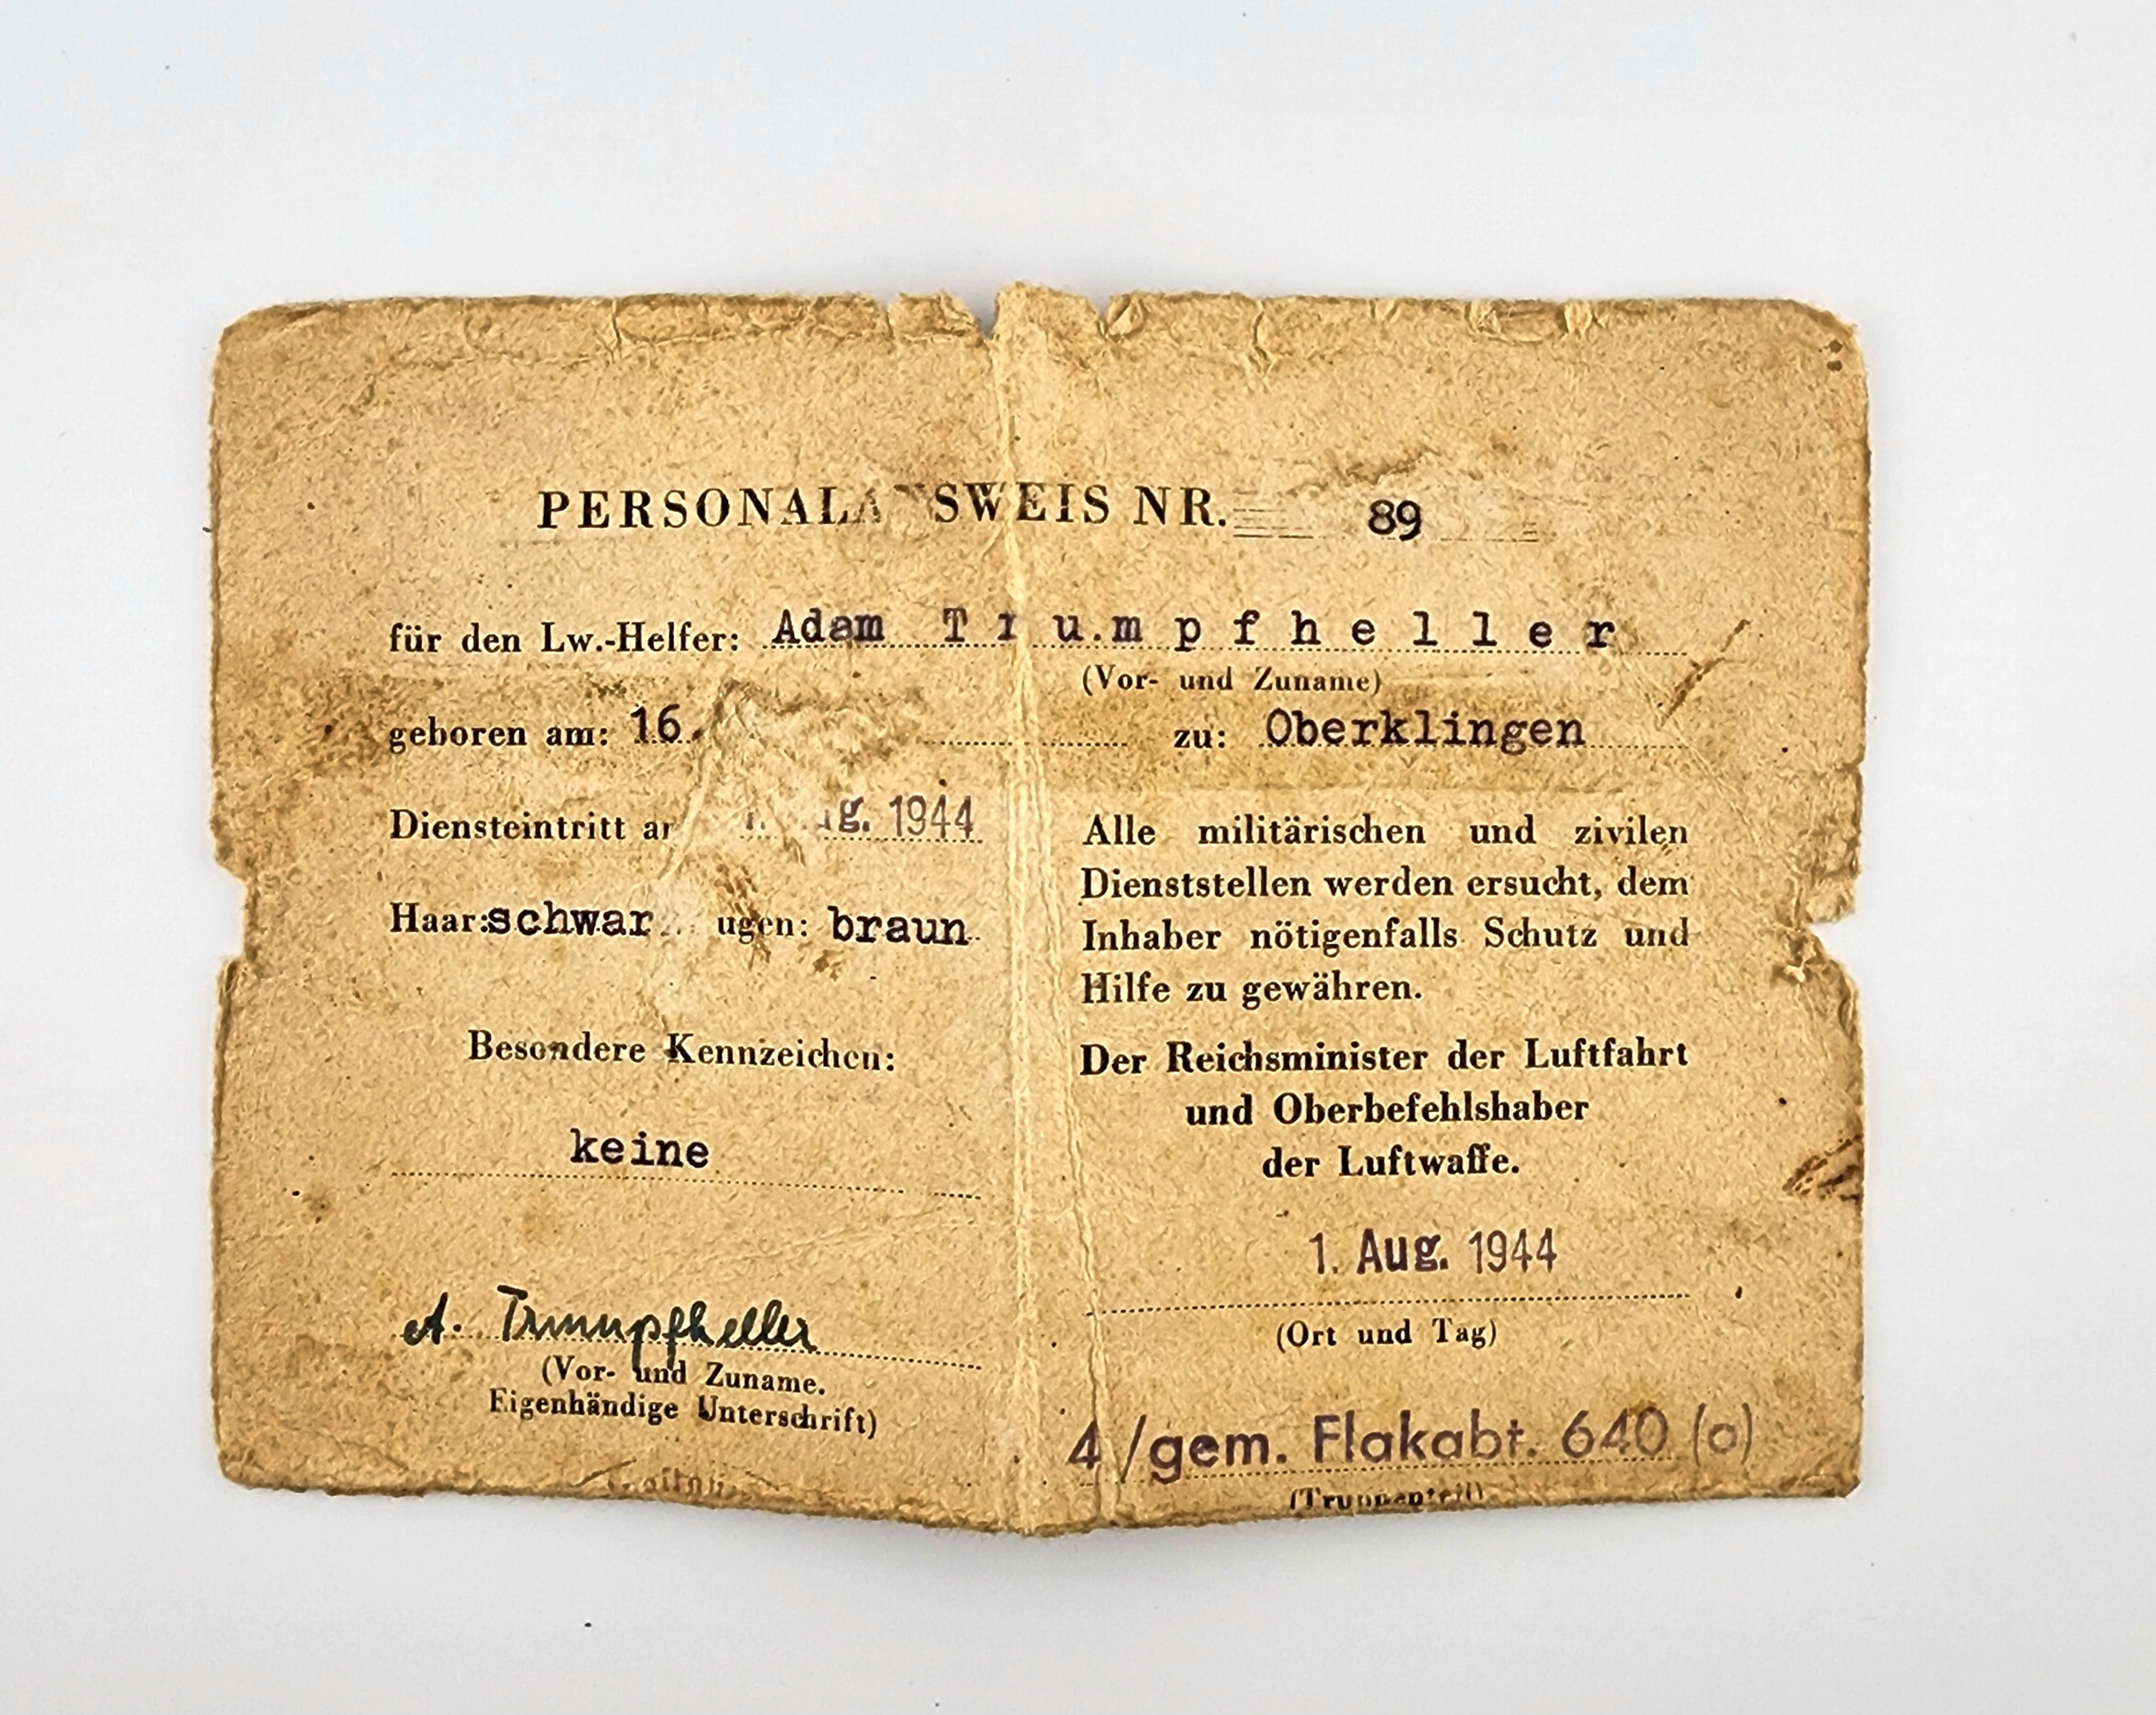 PERSONALAUSWEIS NR. 89
für den Lw.-Helfer: Adam Trumpfheller
(Vor- und Zuname)
geboren am: 16. zu: Oberklingen
Diensteintritt g. 1944
Haar: schwar ugen: braun
Besondere Kennzeichen:
keine
A. Trumpfheller
(Vor- und Zuname.
Eigenhändige Unterschrift)
Alle militärischen und zivilen
Dienststellen werden ersucht, dem
Inhaber nötigenfalls Schutz und
Hilfe zu gewähren.
Der Reichsminister der Luftfahrt
und Oberbefehlshaber
der Luftwaffe.
1. Aug. 1944
(Ort und Tag)
4/gem. Flakabt. 640 (o)
(Truppenteil)